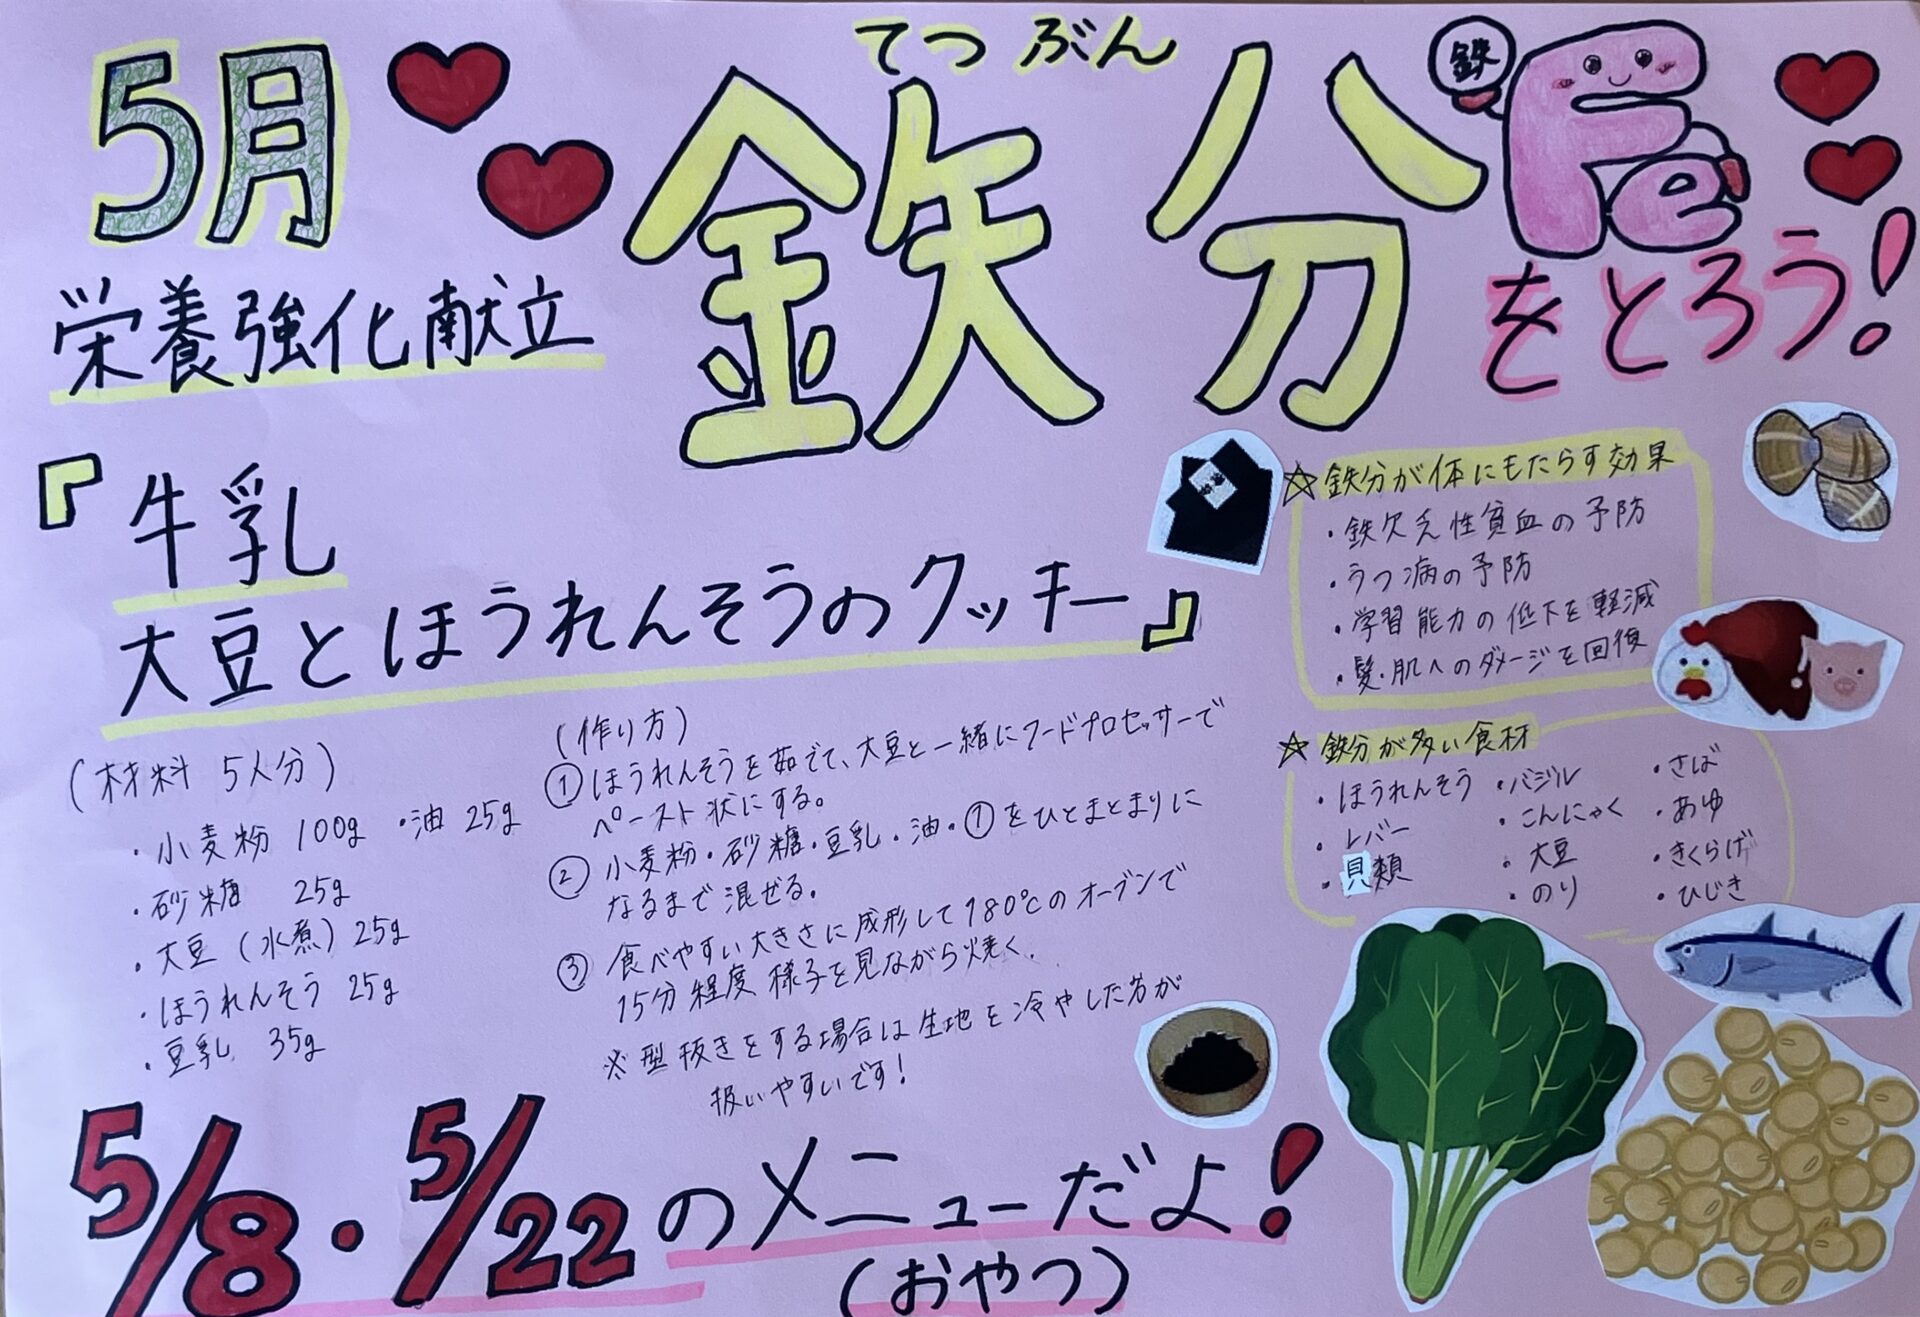 5月
てつぶん
鉄分
鉄
Fe
をとろう!
栄養強化献立
『牛乳
大豆とほうれんそうのクッキー』
(材料 5人分)
・小麦粉 100g ・油 25g
・砂糖 25g
・大豆(水煮) 25g
・ほうれんそう 25g
・豆乳 35g
(作り方)
①ほうれんそうを茹でて、大豆と一緒にフードプロセッサーで
ペースト状にする。
②小麦粉・砂糖・豆乳・油・①をひとまとまりに
なるまで混ぜる。
③食べやすい大きさに成形して180℃のオーブンで
15分程度 様子を見ながら焼く.
※型抜きをする場合は生地を冷やした方が
扱いやすいです!
☆鉄分が体にもたらす効果
・鉄欠乏性貧血の予防
・うつ病の予防
・学習能力の低下を軽減
・髪・肌へのダメージを回復
☆鉄分が多い食材
・ほうれんそう
・レバー
・貝類
・バジル
・こんにゃく
・大豆
・のり
・さば
・あゆ
・きくらげ
・ひじき
5/8・5/22のメニューだよ!
(おやつ)